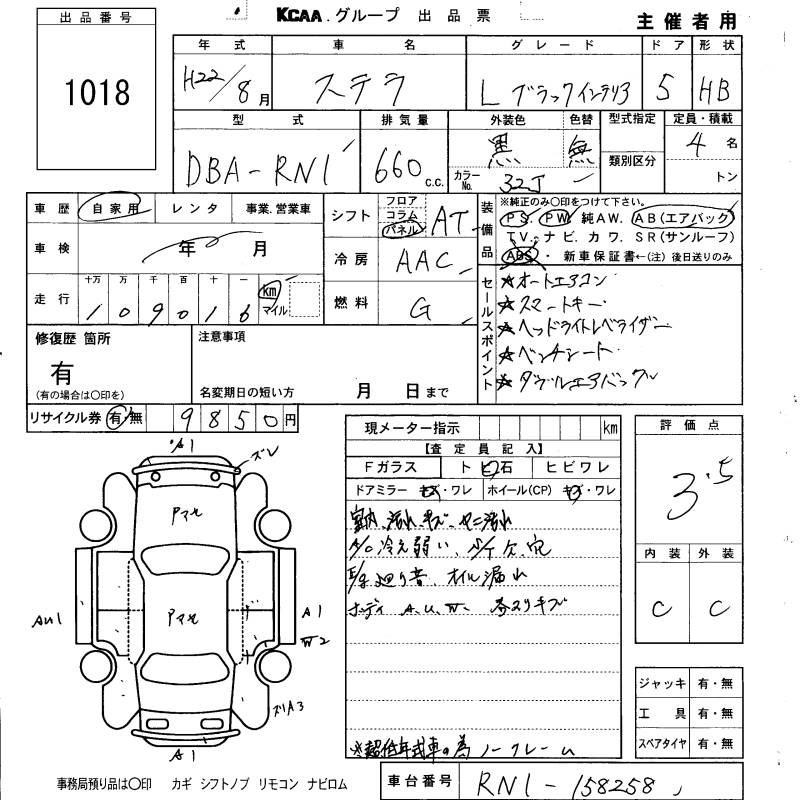 KCAA.グループ 出品票
主催者用
出品番号
1018
年式 車名 グレード ドア 形状
H22/8月 ステラ L ブラックインテリア 5 HB
型式 排気量 外装色 色替 型式指定 定員・積載
DBA-RN1 660c.c. 黒 無 4名
カラーNo. 32J 類別区分 トン
車歴 自家用 レンタ 事業.営業車
シフト フロア コラム パネル AT
装備品 ※純正のみ○印をつけて下さい。
PS. PW. 純AW. AB(エアバッグ)
TV. ナビ. カワ. SR(サンルーフ)
ABS・新車保証書←(注) 後日送りのみ
車検 年 月
冷房 AAC
走行 十万 万 千 百 十 一
109016 km マイル
燃料 G
セールスポイント
★オートエアコン
★スマートキー
★ヘッドライトレベライザー
★ベンチシート
★ダブルエアバッグ
修復歴 箇所
有
(有の場合は○印を)
注意事項
名変期日の短い方 月 日まで
リサイクル券 有 無 9850円
現メーター指示 km
【査定員記入】
Fガラス ト ビ石 ヒビワレ
ドアミラー キズ・ワレ ホイール(CP) キズ・ワレ
室内 汚れ キズ ヤニ汚れ
A/C冷え弱い、 欠、穴
E/g廻り音、オイル漏れ
ボディ A.U.W. 各スリキズ
※超低年式車の為ノークレーム
評価点
3.5
内装 外装
C C
ジャッキ 有・無
工具 有・無
スペアタイヤ 有・無
A1 ズレ
Pマル
Pマル
AU1
A1
W2
スリA3
A1
事務局預り品は○印 カギ シフトノブ リモコン ナビロム
車台番号 RN1-158258